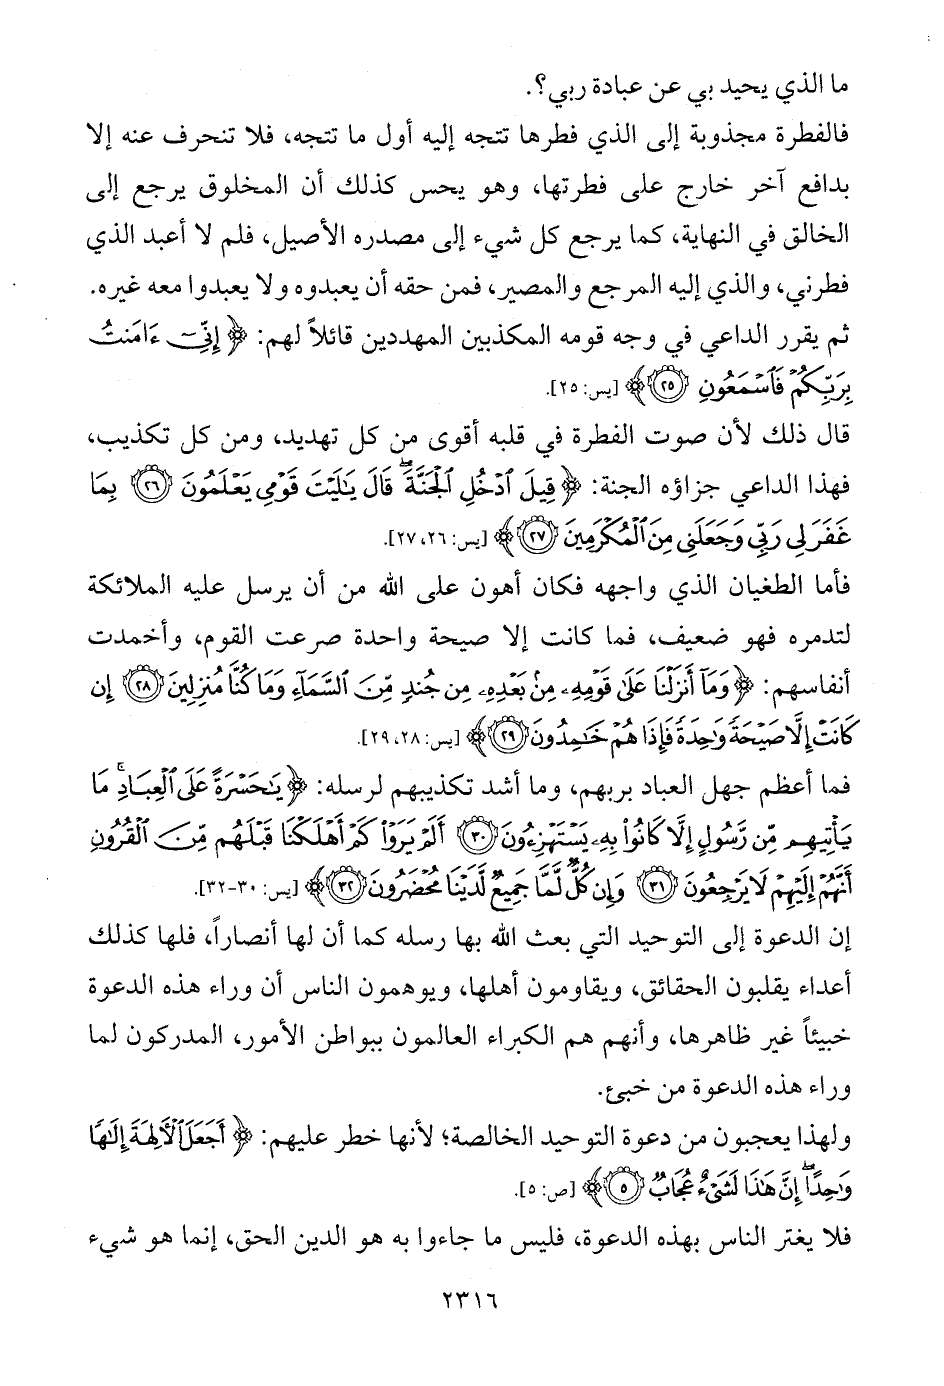 ما الذي يحيد بي عن عبادة ربي؟.
فالفطرة مجذوبة إلى الذي فطرها تتجه إليه أول ما تتجه، فلا تنحرف عنه إلا
بدافع آخر خارج على فطرتها، وهو يحس كذلك أن المخلوق يرجع إلى
الخالق في النهاية، كما يرجع كل شيء إلى مصدره الأصيل، فلم لا أعبد الذي
فطرني، والذي إليه المرجع والمصير، فمن حقه أن يعبدوه ولا يعبدوا معه غيره.
ثم يقرر الداعي في وجه قومه المكذبين المهددين قائلاً لهم: ﴿ إِنِّيٓ ءَامَنتُ
بِرَبِّكُمْ فَٱسْمَعُونِ ۝٢٥ ﴾ [يس: ٢٥].
قال ذلك لأن صوت الفطرة في قلبه أقوى من كل تهديد، ومن كل تكذيب،
فهذا الداعي جزاؤه الجنة: ﴿ قِيلَ ٱدْخُلِ ٱلْجَنَّةَۖ قَالَ يَٰلَيْتَ قَوْمِي يَعْلَمُونَ ۝٢٦ بِمَا
غَفَرَ لِي رَبِّي وَجَعَلَنِي مِنَ ٱلْمُكْرَمِينَ ۝٢٧ ﴾ [يس: ٢٦، ٢٧].
فأما الطغيان الذي واجهه فكان أهون على الله من أن يرسل عليه الملائكة
لتدمره فهو ضعيف، فما كانت إلا صيحة واحدة صرعت القوم، وأخمدت
أنفاسهم: ﴿ وَمَآ أَنزَلْنَا عَلَىٰ قَوْمِهِۦ مِنۢ بَعْدِهِۦ مِن جُندٍ مِّنَ ٱلسَّمَآءِ وَمَا كُنَّا مُنزِلِينَ ۝٢٨ إِن
كَانَتْ إِلَّا صَيْحَةً وَٰحِدَةً فَإِذَا هُمْ خَٰمِدُونَ ۝٢٩ ﴾ [يس: ٢٨، ٢٩].
فما أعظم جهل العباد بربهم، وما أشد تكذيبهم لرسله: ﴿ يَٰحَسْرَةً عَلَى ٱلْعِبَادِۚ مَا
يَأْتِيهِم مِّن رَّسُولٍ إِلَّا كَانُوا۟ بِهِۦ يَسْتَهْزِءُونَ ۝٣٠ أَلَمْ يَرَوْا۟ كَمْ أَهْلَكْنَا قَبْلَهُم مِّنَ ٱلْقُرُونِ
أَنَّهُمْ إِلَيْهِمْ لَا يَرْجِعُونَ ۝٣١ وَإِن كُلٌّ لَّمَّا جَمِيعٌ لَّدَيْنَا مُحْضَرُونَ ۝٣٢ ﴾ [يس: ٣٠-٣٢].
إن الدعوة إلى التوحيد التي بعث الله بها رسله كما أن لها أنصاراً، فلها كذلك
أعداء يقلبون الحقائق، ويقاومون أهلها، ويوهمون الناس أن وراء هذه الدعوة
خبيئاً غير ظاهرها، وأنهم هم الكبراء العالمون ببواطن الأمور، المدركون لما
وراء هذه الدعوة من خبئ.
ولهذا يعجبون من دعوة التوحيد الخالصة؛ لأنها خطر عليهم: ﴿ أَجَعَلَ ٱلْأَلِهَةَ إِلَٰهًا
وَٰحِدًاۖ إِنَّ هَٰذَا لَشَيْءٌ عُجَابٌ ۝٥ ﴾ [ص: ٥].
فلا يغتر الناس بهذه الدعوة، فليس ما جاءوا به هو الدين الحق، إنما هو شيء
٢٣١٦